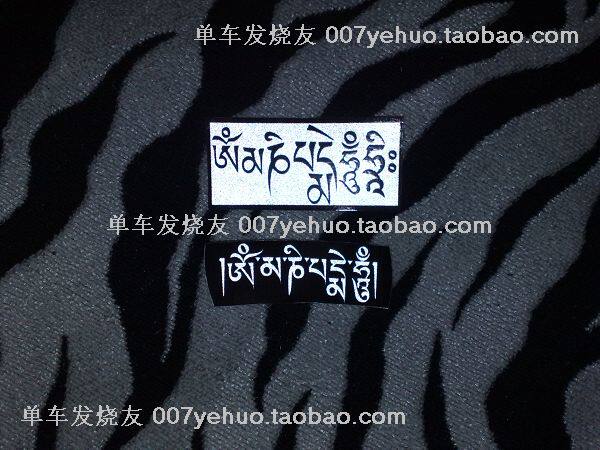 单车发烧友 007yehuo.taobao.com
ༀ མ ཎི པ དྨེ ཧཱུྃ ཧྲཱིཿ
单车发烧友 007yehuo.taobao.com
།ༀ་མ་ཎི་པ་དྨེ་ཧཱུྃ།
单车发烧友 007yehuo.taobao.com